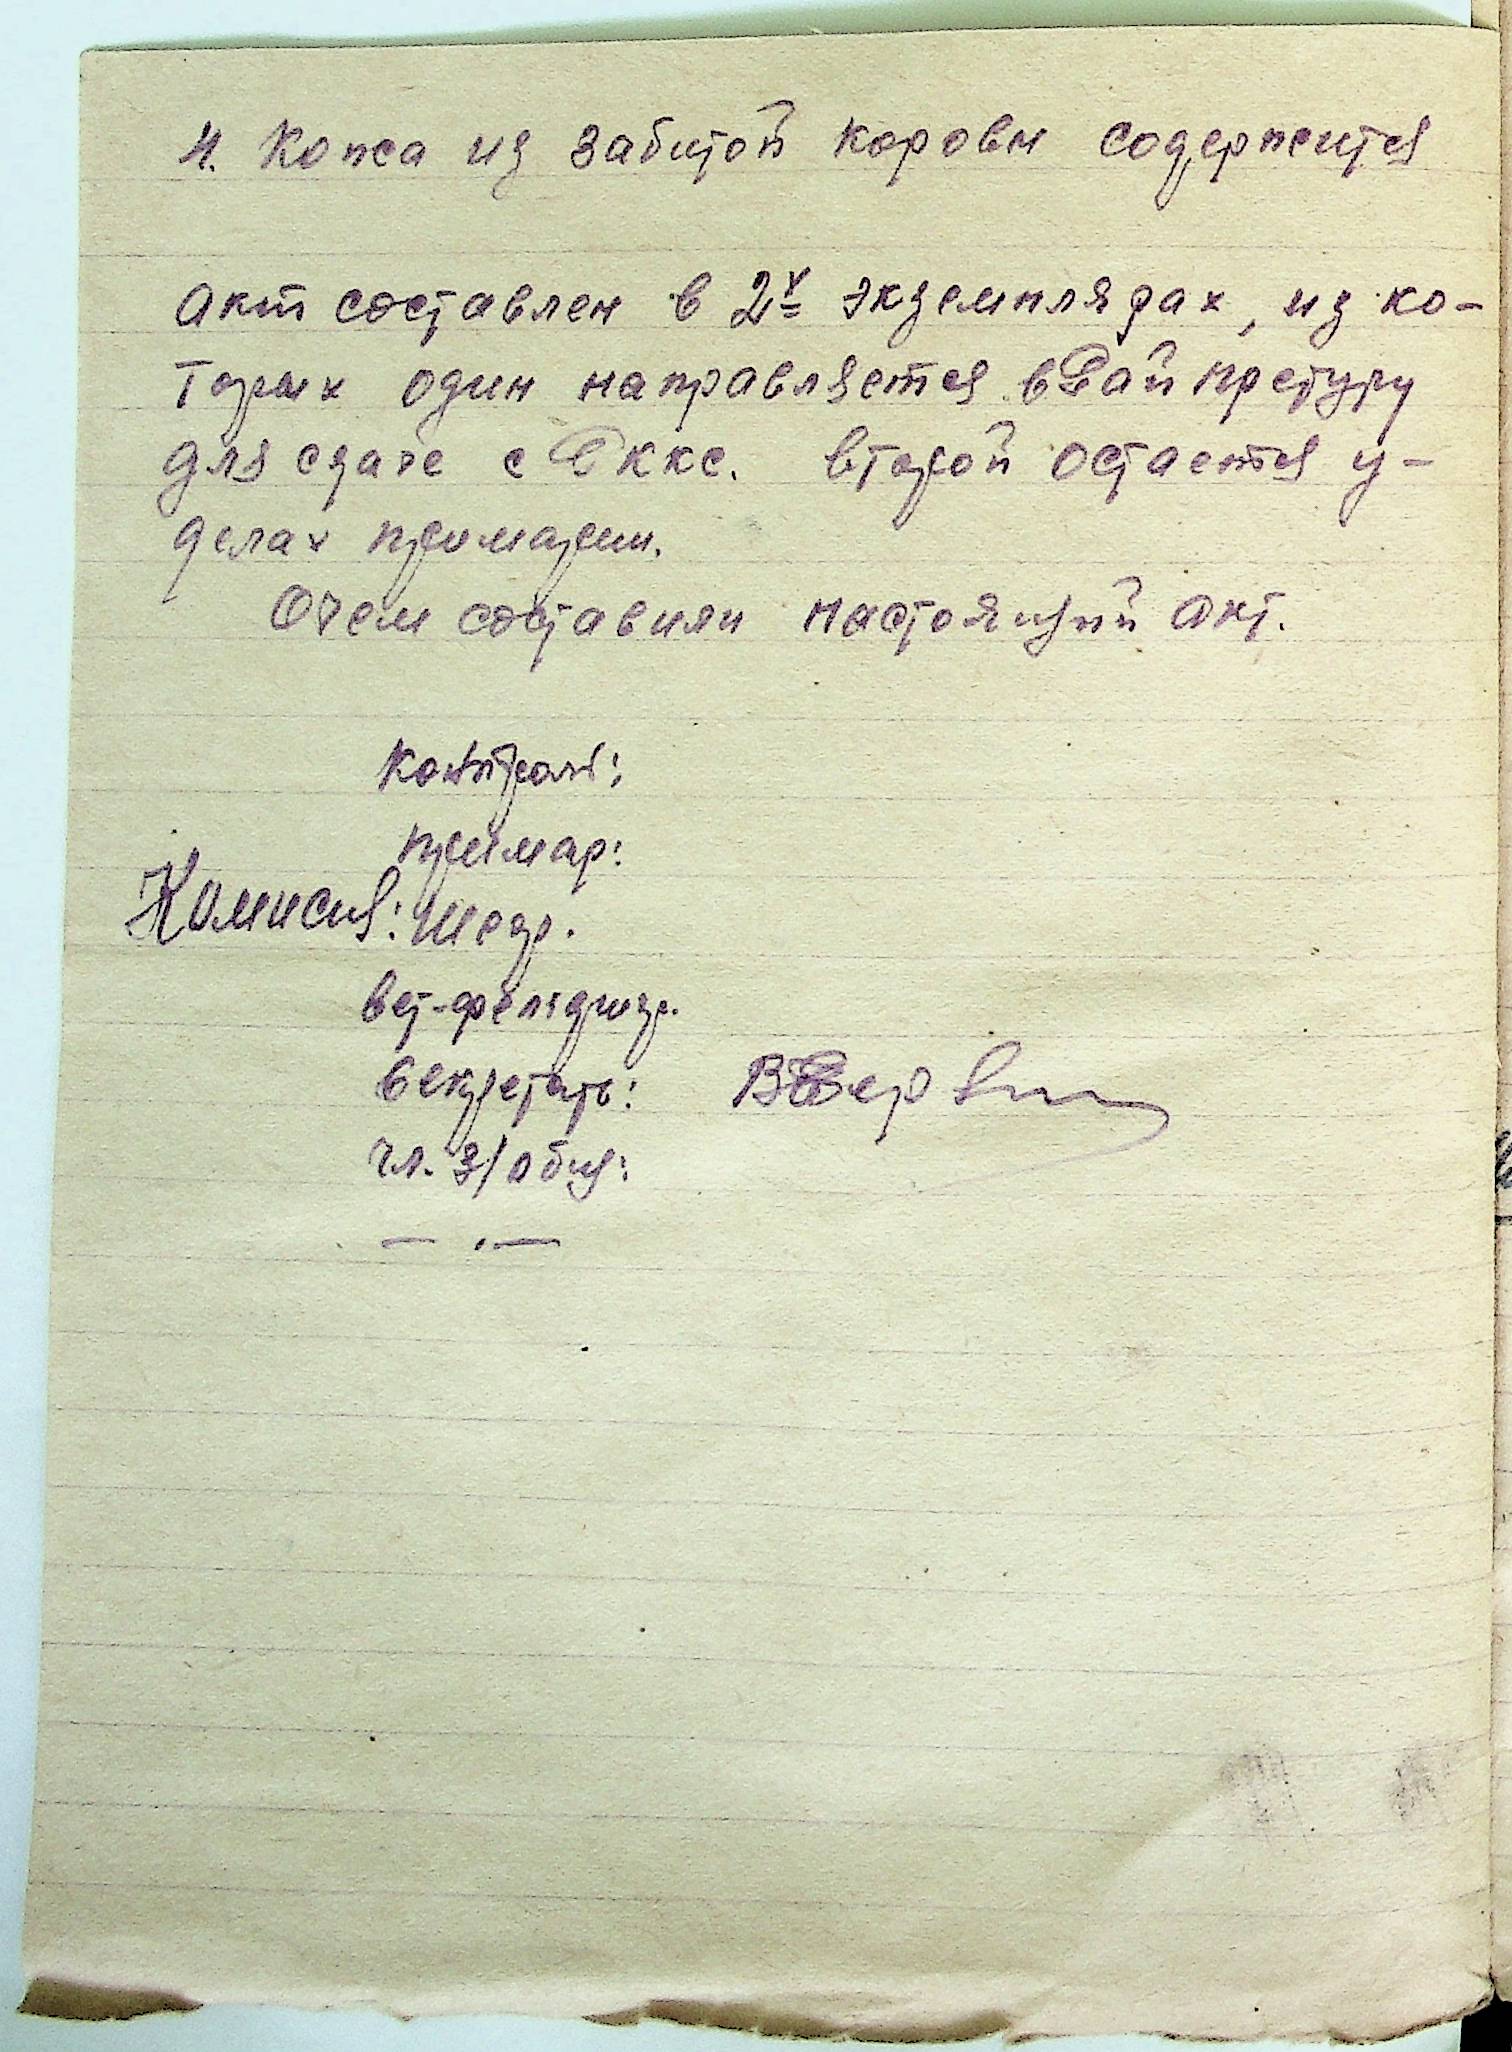 4. Кожа из забитой коровы содержится
Акт составлен в 2х экземплярах, из ко-
торых один направляется в Райпретуру
для сдаче с Скс. второй остается у-
делах примарии.
О чем составили настоящий акт.
Контроль:
Примар:
Комисия: Шеф.
вет-фельдшер.
Секретать:
чл. З/общ:
— . —